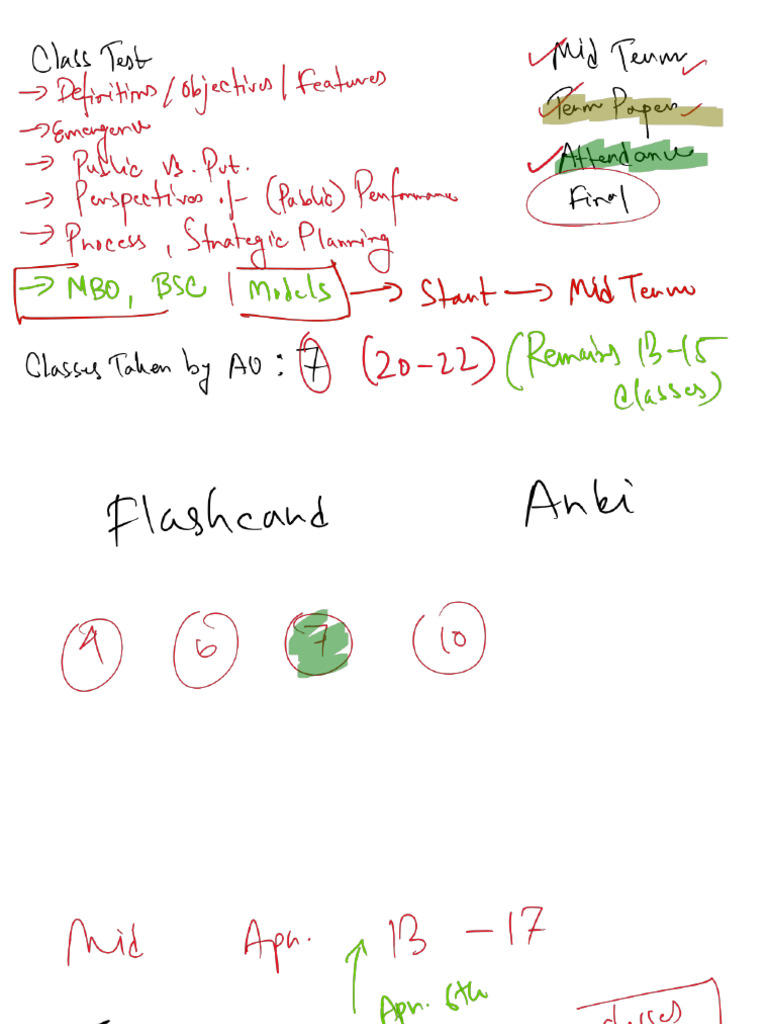 Class Test
→ Definitions / Objectives / Features
→ Emergence
→ Public vs. Pvt.
→ Perspectives of (Public) Performance
→ Process, Strategic Planning
→ MBO, BSC | Models → Start → Mid Term
Mid Term
Term Paper
Attendance
Final
Classes Taken by AO : 7 (20-22) (Remains 13-15
Classes)
Flashcard Anki
4 6 7 10
Mid Apr. 13 - 17
Apr. 6th
classes